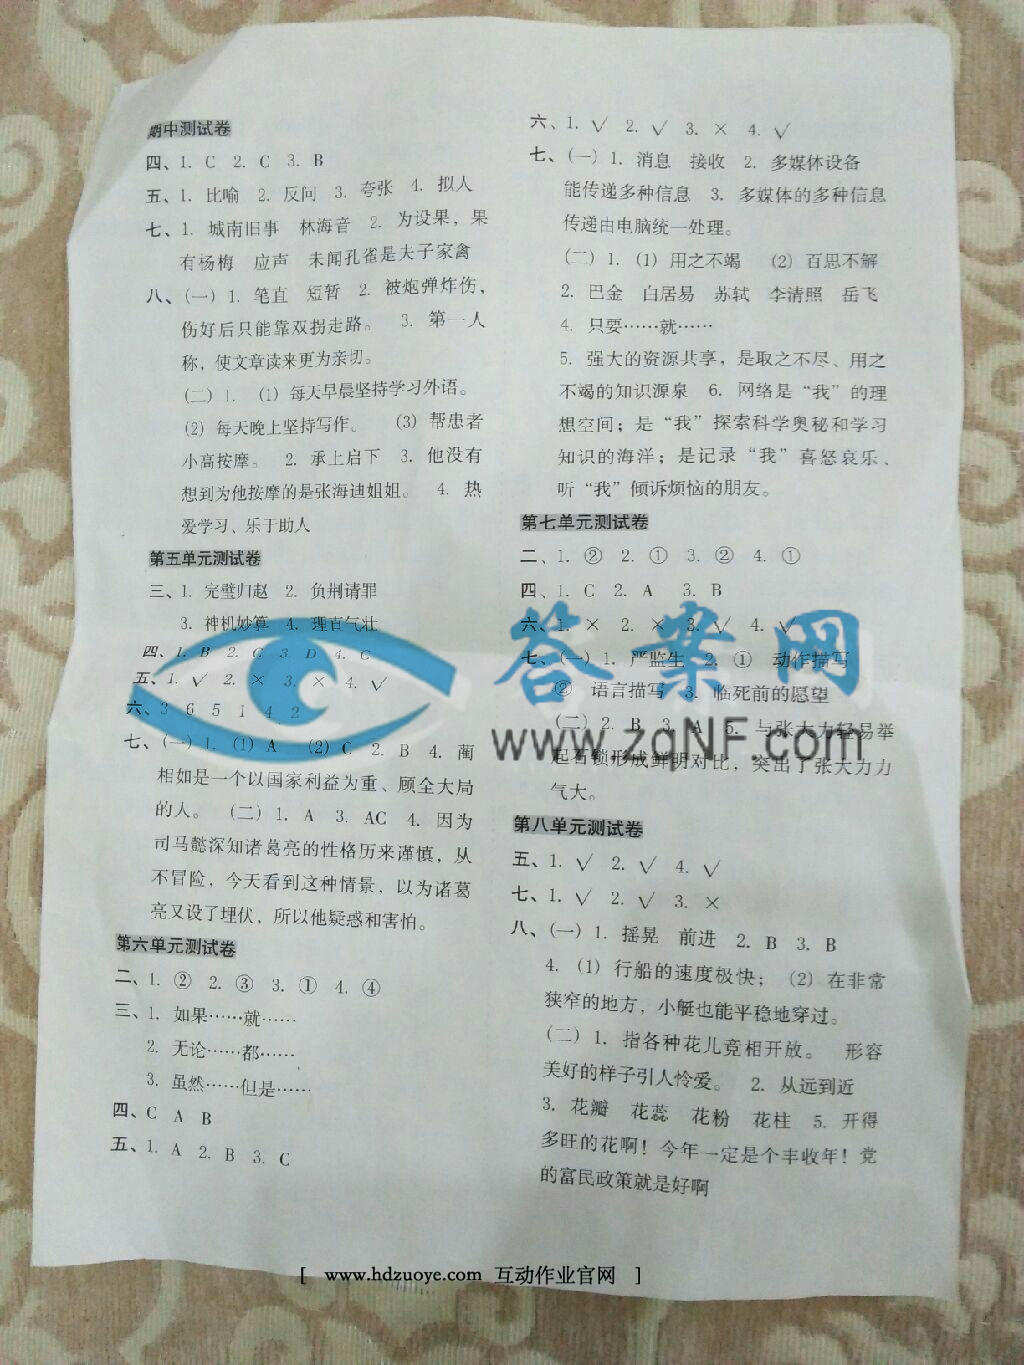 期中测试卷
四、1. C 2. C 3. B
五、1. 比喻 2. 反问 3. 夸张 4. 拟人
七、1. 城南旧事 林海音 2. 为设果，果
有杨梅 应声 未闻孔雀是夫子家禽
八、(一) 1. 笔直 短暂 2. 被炮弹炸伤，
伤好后只能靠双拐走路。 3. 第一人
称，使文章读来更为亲切。
(二) 1. (1) 每天早晨坚持学习外语。
(2) 每天晚上坚持写作。 (3) 帮患者
小高按摩。 2. 承上启下 3. 他没有
想到为他按摩的是张海迪姐姐。 4. 热
爱学习、乐于助人
第五单元测试卷
三、1. 完璧归赵 2. 负荆请罪
3. 神机妙算 4. 理直气壮
四、1. B 2. C 3. D 4. C
五、1. √ 2. × 3. × 4. √
六、3 6 5 1 4 2
七、(一) 1. (1) A (2) C 2. B 4. 蔺
相如是一个以国家利益为重、顾全大局
的人。 (二) 1. A 3. AC 4. 因为
司马懿深知诸葛亮的性格历来谨慎，从
不冒险，今天看到这种情景，以为诸葛
亮又设了埋伏，所以他疑惑和害怕。
第六单元测试卷
二、1. ② 2. ③ 3. ① 4. ④
三、1. 如果……就……
2. 无论……都……
3. 虽然……但是……
四、C A B
五、1. A 2. B 3. C
六、1. √ 2. √ 3. × 4. √
七、(一) 1. 消息 接收 2. 多媒体设备
能传递多种信息 3. 多媒体的多种信息
传递由电脑统一处理。
(二) 1. (1) 用之不竭 (2) 百思不解
2. 巴金 白居易 苏轼 李清照 岳飞
4. 只要……就……
5. 强大的资源共享，是取之不尽、用之
不竭的知识源泉 6. 网络是“我”的理
想空间；是“我”探索科学奥秘和学习
知识的海洋；是记录“我”喜怒哀乐、
听“我”倾诉烦恼的朋友。
第七单元测试卷
二、1. ② 2. ① 3. ② 4. ①
四、1. C 2. A 3. B
六、1. × 2. × 3. √ 4. √
七、(一) 1. 严监生 2. ① 动作描写
② 语言描写 3. 临死前的愿望
(二) 2. B 3. A 5. 与张大力轻易举
起石锁形成鲜明对比，突出了张大力力
气大。
第八单元测试卷
五、1. √ 2. √ 4. √
七、1. √ 2. √ 3. ×
八、(一) 1. 摇晃 前进 2. B 3. B
4. (1) 行船的速度极快； (2) 在非常
狭窄的地方，小艇也能平稳地穿过。
(二) 1. 指各种花儿竞相开放。 形容
美好的样子引人怜爱。 2. 从远到近
3. 花瓣 花蕊 花粉 花柱 5. 开得
多旺的花啊！今年一定是个丰收年！党
的富民政策就是好啊
答案网
www.zqNF.com
[ www.hdzuoye.com 互动作业官网 ]